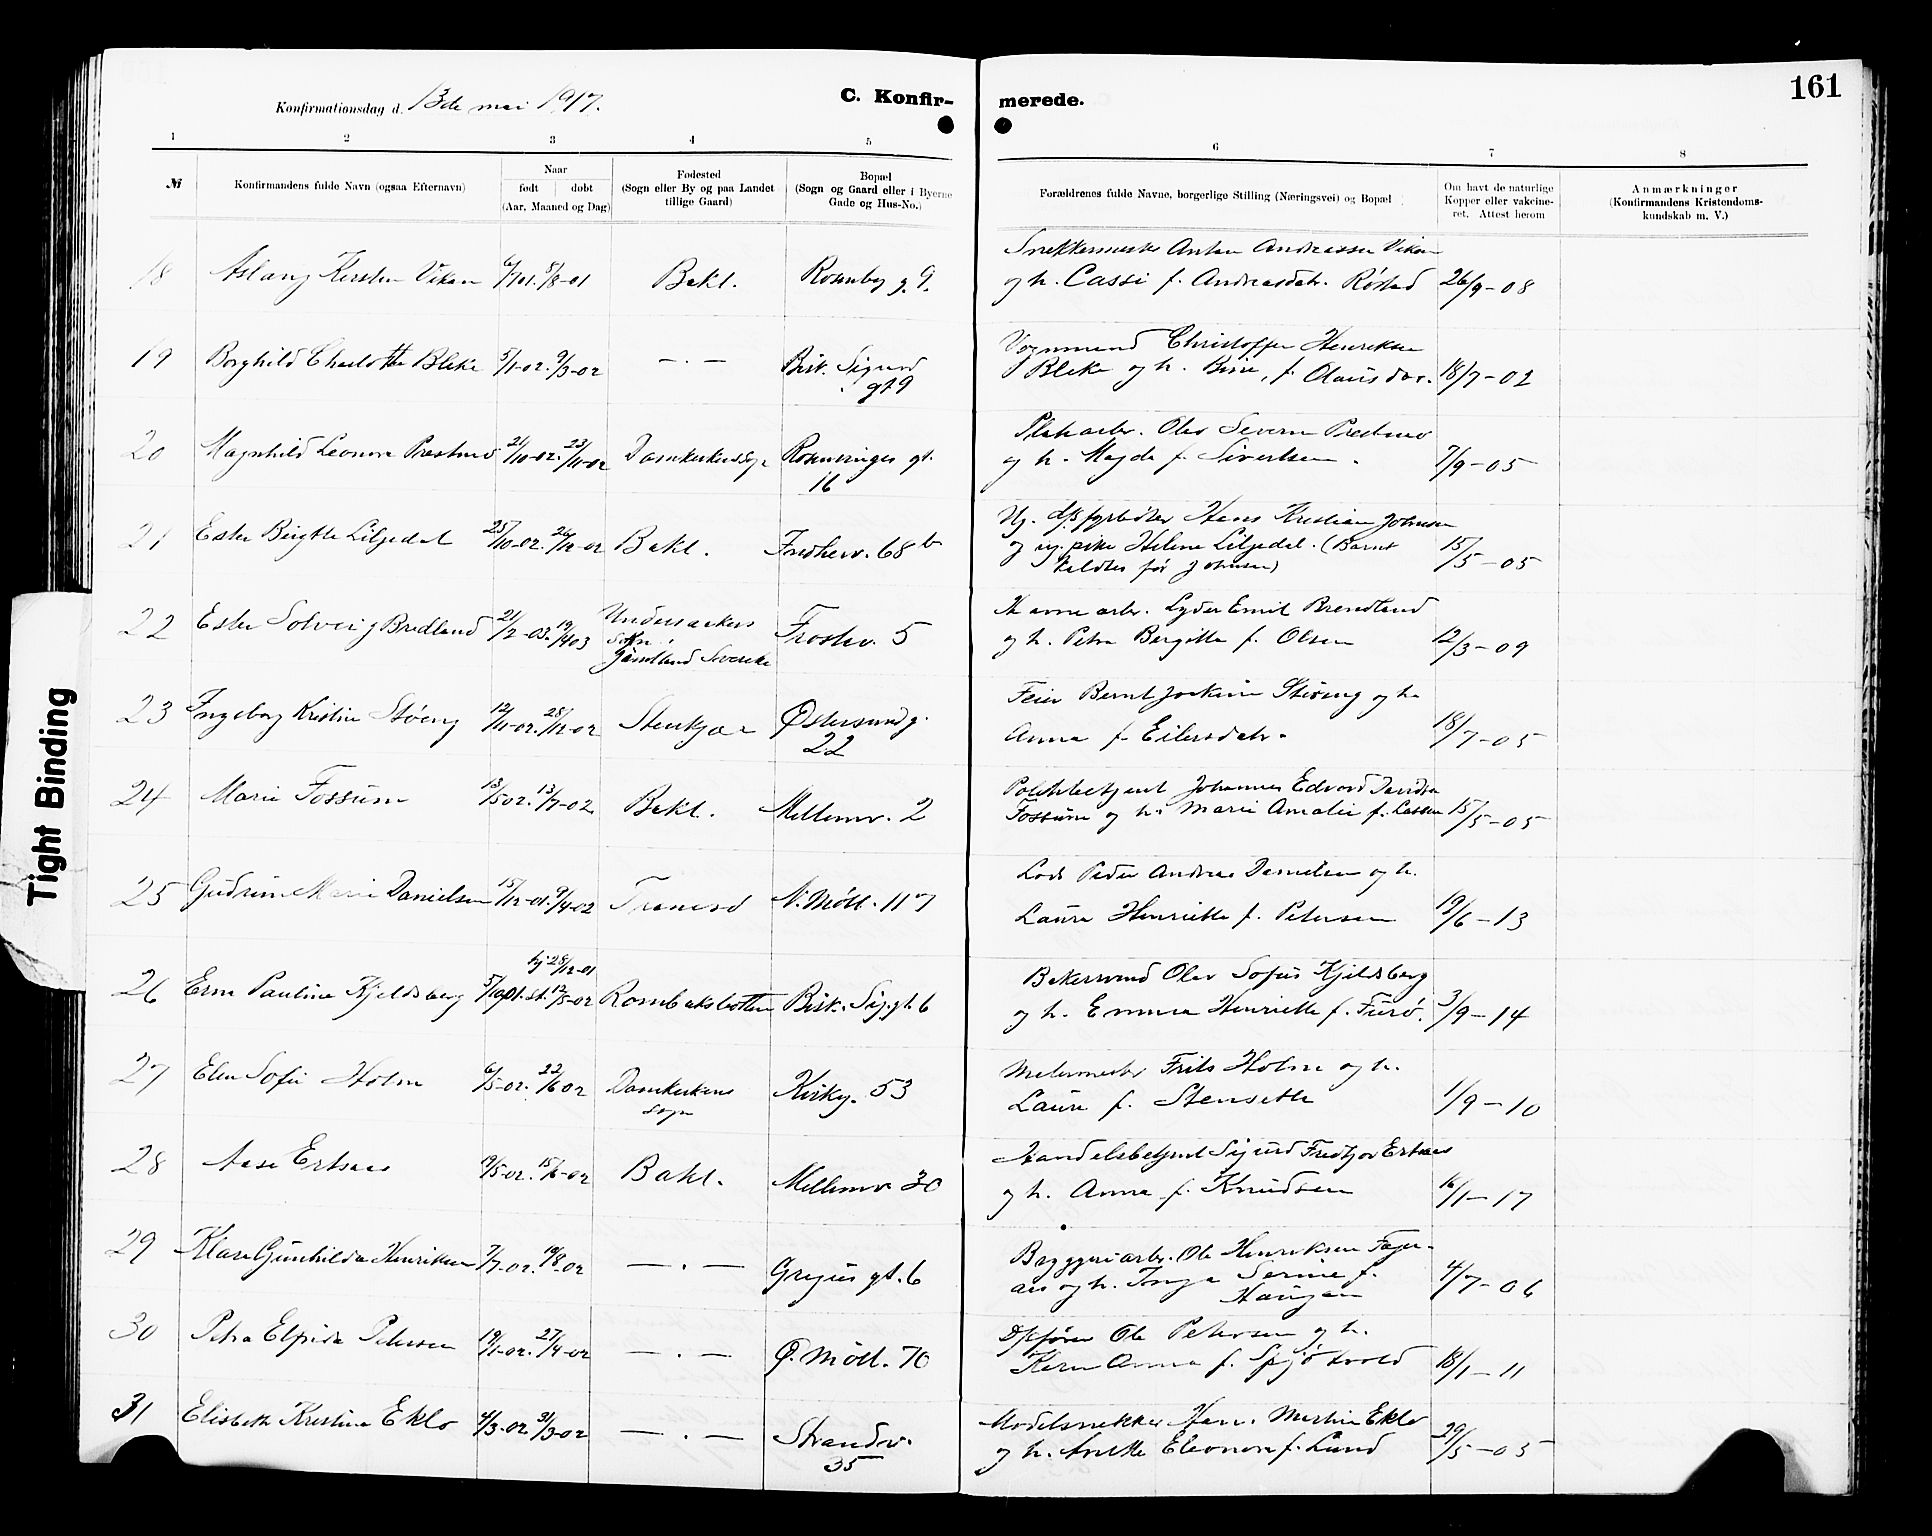 161
Konfirmationsdag d. 13de mai 1917.
C. Konfir-
merede.
1 2 3 4 5 6 7 8
№
Konfirmandens fulde Navn (ogsaa Efternavn)
Naar
født døbt
(Aar, Maaned og Dag)
Fødested
(Sogn eller By og paa Landet
tillige Gaard)
Bopæl
(Sogn og Gaard eller i Byerne
Gade og Hus-No.)
Forældrenes fulde Navne, borgerlige Stilling (Næringsvei) og Bopæl
Om havt de naturlige
Kopper eller vakcine-
ret. Attest herom
Anmærkninger
(Konfirmandens Kristendoms-
kundskab m. V.)
Snekkermester Anton Andreassen Viken
18 Aslaug Kirsten Viken 6/7 01. 5/8-01 Bakl. Rosenbg g. 9. og h. Cassi f. Andreasdatr. Røstad 26/9-08
Vognmand Christoffer Henriksen
19 Borghild Charlotte Bleke 5/1-02. 9/3-02 — . — Birk. Sigurd
gt 9
Bleke og h. Birie, f. Olausdtr. 18/7-02
Platearb. Olav Severin Prestmo
20 Magnhild Leonore Prestmo 21/10-02. 23/11-02 Domkirkens sgn Rosenvinges gt.
16
og h. Magda f. Sivertsen. 7/9-05
Ug. d/s fyrbøter Hans Kristian Johnsen
21 Ester Birgitte Liljedal 25/10-02. 26/12-02 Bakl. Innherv. 68 b og ug. pike Helene Liljedal. (Barnet
kaldtes før Johnsen)
15/5-05
22 Ester Solveig Bredland 21/2-03. 19/4 03 Undersaakers
sokn
Jämtland Sverike
Frostev. 5
Havnearb. Lyder Emil Brendland
og h. Petra Bergitte f. Olsen 12/3-09
23 Ingeborg Kristine Støeng 12/11-02. 28/12-02 Stenkjær Østersundg.
22
Feier Bernt Joakim Støeng og h.
Anna f. Eilersdatr. 18/7-05
24 Marie Fossum 13/5 02. 13/7-02 Bakl. Mellemv. 2
Politibetjent Johannes Edvard Davidsen
Fossum og h. Marie Amalie f. Lassen 15/5-05
25 Gudrun Marie Danielsen 15/12-01. 9/4-02 Tranesd N. Møll. 117
Lods Peder Andreas Danielsen og h.
Laura Henriette f. Petersen 19/6-13
hj 28/12-01
26 Erna Pauline Kjeldsberg 5/10 01. st. 12/5-02 Rombaksbotten Birk. Sig. gt. 6
Bakersvend Olav Sofus Kjeldsberg
og h. Emma Henriette f. Furø. 3/9-14
27 Elen Sofie Holm 6/5-02. 22/6 02 Domkirkens
sogn
Kirkg. 53
Malermester Frits Holm og h.
Laura f. Stenseth 1/9-10
28 Aase Ertsaas 19/5-02. 15/6-02 Bakl. Mellemv. 30
Handelsbetjent Sigurd Fredtjov Ertsaas
og h. Anna f. Knudsen 16/1-17
29 Klara Gunhilda Henriksen 7/7-02. 19/8-02 — . — Gregus gt. 6
Bryggeriarb. Ole Henriksen Fager-
aas og h. Inga Serine f.
Haugan
4/7-06
30 Petra Elfrida Petersen 19/1-02. 27/4-02 — . — Ø. Møll. 70
D/sfører Ole Petersen og h.
Karen Anna f. Spjøtvold 18/1-11
31 Elisbeth Kristine Eklo 4/3-02. 31/3-02 — . — Strandv.
35
Modelsnekker Hans Martin Eklo
og h. Anette Eleonora f. Lund 29/5-05
Tight Binding